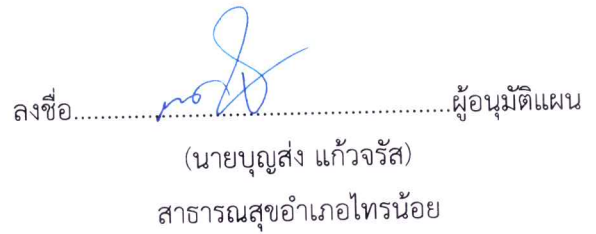 ลงชื่อ................................................ผู้อนุมัติแผน
(นายบุญส่ง แก้วจรัส)
สาธารณสุขอำเภอไทรน้อย